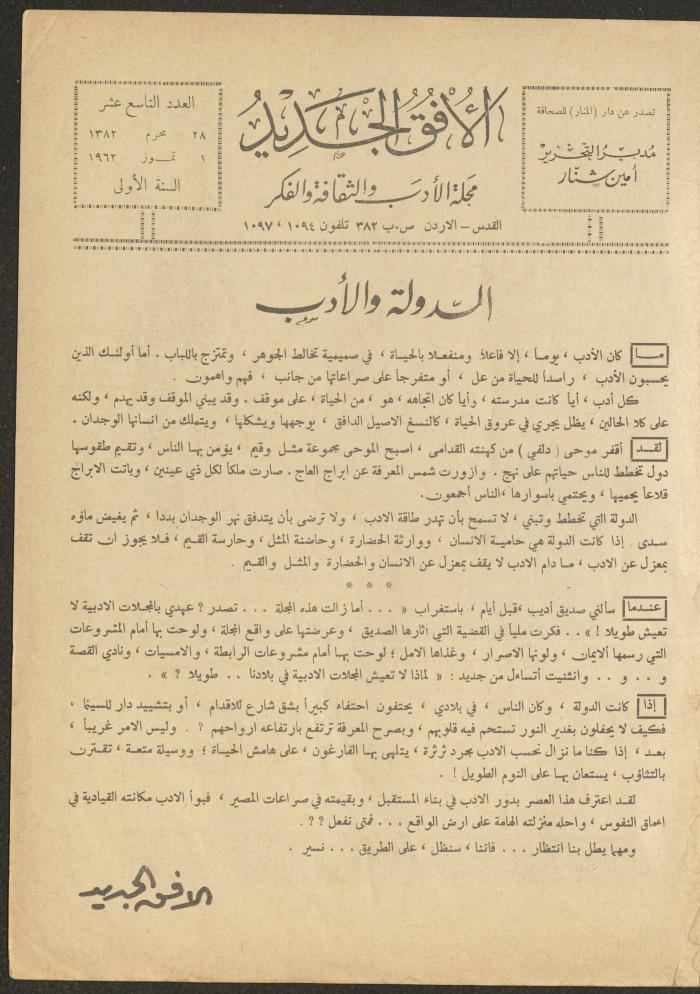 تصدر عن دار (المنار) للصحافة
مدير التحرير
أمين شنّار
الأفق الجديد
مجلة الأدب والثقافة والفكر
القدس – الاردن ص.ب ٣٨٢ تلفون ١٠٩٤ ، ١٠٩٧
العدد التاسع عشر
٢٨ محرم ١٣٨٢
١ تموز ١٩٦٢
السنة الأولى
الدولة والأدب
ما كان الأدب ، يوماً ، إلا فاعلاً ومنفعلا بالحياة ، في صميمية تخالط الجوهر ، وتمتزج باللباب . أما أولئك الذين
يحسبون الأدب ، راصداً للحياة من عل ، أو متفرجاً على صراعاتها من جانب ، فهم واهمون .
كل أدب ، أياً كانت مدرسته ، وأياً كان اتجاهه ، هو ، من الحياة ، على موقف . وقد يبني الموقف وقد يهدم ، ولكنه
على كلا الحالين ، يظل يجري في عروق الحياة ، كالنسغ الاصيل الدافق ، يوجهها ويشكلها ، ويتملك من انسانها الوجدان .
لقد أقفر موحى ( دلفي ) من كهنته القدامى ، اصبح الموحى مجموعة مثل وقيم ، يؤمن بها الناس ، وتقيم طقوسها
دول تخطط للناس حياتهم على نهج . وازورت شمس المعرفة عن ابراج العاج . صارت ملكاً لكل ذي عينين ، وباتت الابراج
قلاعاً يحميها ، ويحتمي باسوارها ، الناس أجمعون .
الدولة التي تخطط وتبني ، لا تسمح بأن تهدر طاقة الادب ، ولا ترضى بأن يتدفق نهر الوجدان بددا ، ثم يغيض ماؤه
سدى . إذا كانت الدولة هي حامية الانسان ، ووارثة الحضارة ، وحاضنة المثل ، وحارسة القيم ، فلا يجوز ان تقف
بمعزل عن الادب ، ما دام الادب لا يقف بمعزل عن الانسان والحضارة والمثل والقيم .
* * *
عندما سألني صديق أديب ، قبل أيام ، باستغراب « . . . أما زالت هذه المجلة . . . تصدر ؟ عهدي بالمجلات الادبية لا
تعيش طويلا ! » . . فكرت ملياً في القضية التي أثارها الصديق ، وعرضتها على واقع المجلة ، ولوحت بها أمام المشروعات
التي رسمها ألايمان ، ولونها الاصرار ، وغذاها الامل ؛ لوحت بها أمام مشروعات الرابطة ، والامسيات ، ونادي القصة
و . . و . . وانثنيت أتساءل من جديد : « لماذا لا تعيش المجلات الادبية في بلادنا . . طويلا ؟ » .
إذا كانت الدولة ، وكان الناس ، في بلادي ، يحتفون احتفاء كبيراً بشق شارع للاقدام ، أو بتشييد دار للسينما ،
فكيف لا يحفلون بغدير النور تستحم فيه قلوبهم ، وبصرح المعرفة ترتفع بارتفاعه ارواحهم ؟ . وليس الامر غريباً ،
بعد ، إذا كنا ما نزال نحسب الادب مجرد ثرثرة ، يتلهى بها الفارغون ، على هامش الحياة ؛ ووسيلة متعة ، تقترن
بالتثاؤب ، يستعان بها على النوم الطويل ! .
لقد اعترف هذا العصر بدور الادب في بناء المستقبل ، وبقيمته في صراعات المصير ، فبوأ الادب مكانته القيادية في
اعماق النفوس ، واحله منزلته الهامة على ارض الواقع . . . فمتى نفعل ؟ ؟ .
ومهما يطل بنا انتظار . . . فاننا ، سنظل ، على الطريق . . . نسير .
الافق الجديد